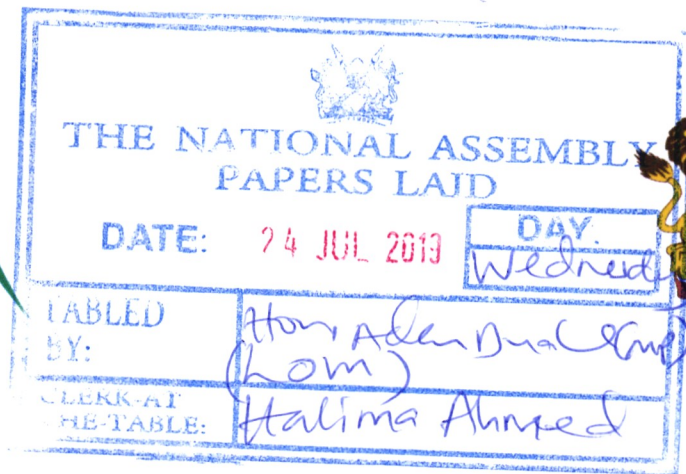 THE NATIONAL ASSEMBLY
PAPERS LAID
DATE: 24 JUL 2019
DAY.
Wednesday
TABLED BY:
Hon Aden Duale
(LOM)
CLERK-AT THE-TABLE:
Halima Ahmed